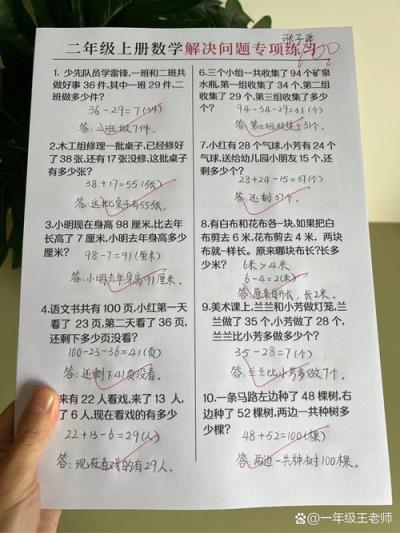 张子
100
二年级上册数学解决问题专项练习
1. 少先队员学雷锋,一班和二班共
做好事 36 件,其中一班 29 件,二
班做多少件?
36-29=7(件)
答:二班做7件.
2.木工组修理一批桌子,已经修好
了 38 张,还有 17 张没修,这批桌子
有多少张?
38+17=55(张)
答:这批桌子有55张.
3.小明现在身高 98 厘米,比去年
长高了 7 厘米,小明去年身高多少
厘米?
98-7=91(厘米)
答:小明去年身高91厘米.
4.语文书共有 100 页,小红第一天
看了 23 页,第二天看了 36 页,
还剩下多少页没看?
100-23-36=41(页)
答:还剩下41页没看.
来有 22 人看戏,来了 13 人,
了 6 人,现在看戏的有多少
22+13-6=29(人)
答:现在看戏的有29人.
6.三个小组一共收集了 94 个矿泉
水瓶,第一组收集了 34 个,第二组
收集了 29 个,第三组收集了多少
个?
94-34-29=31(个)
答:第三组收集了31个.
7.小红有 28 个气球,小芳有 24 个
气球,送给幼儿园小朋友 15 个,还
剩多少个?
28+24-15=37(个)
答:还剩37个.
8.有白布和花布各一块,如果把白
布剪去 6 米,花布剪去 4 米, 两块
布就一样长。原来哪块布长?长多
少米?
6米>4米
6-4=2(米)
答:原来白布长,长2米.
9.美术课上,兰兰和小芳做灯笼,兰
兰做了 35 个,小芳做了 28 个,
兰兰比小芳多做多少个?
35-28=7(个)
答:兰兰比小芳多做7个.
10.一条马路左边种了 48 棵树,右
边种了 52 棵树,两边一共种树多
少棵?
48+52=100(棵)
答:两边一共种树100棵.
@一年级王老师